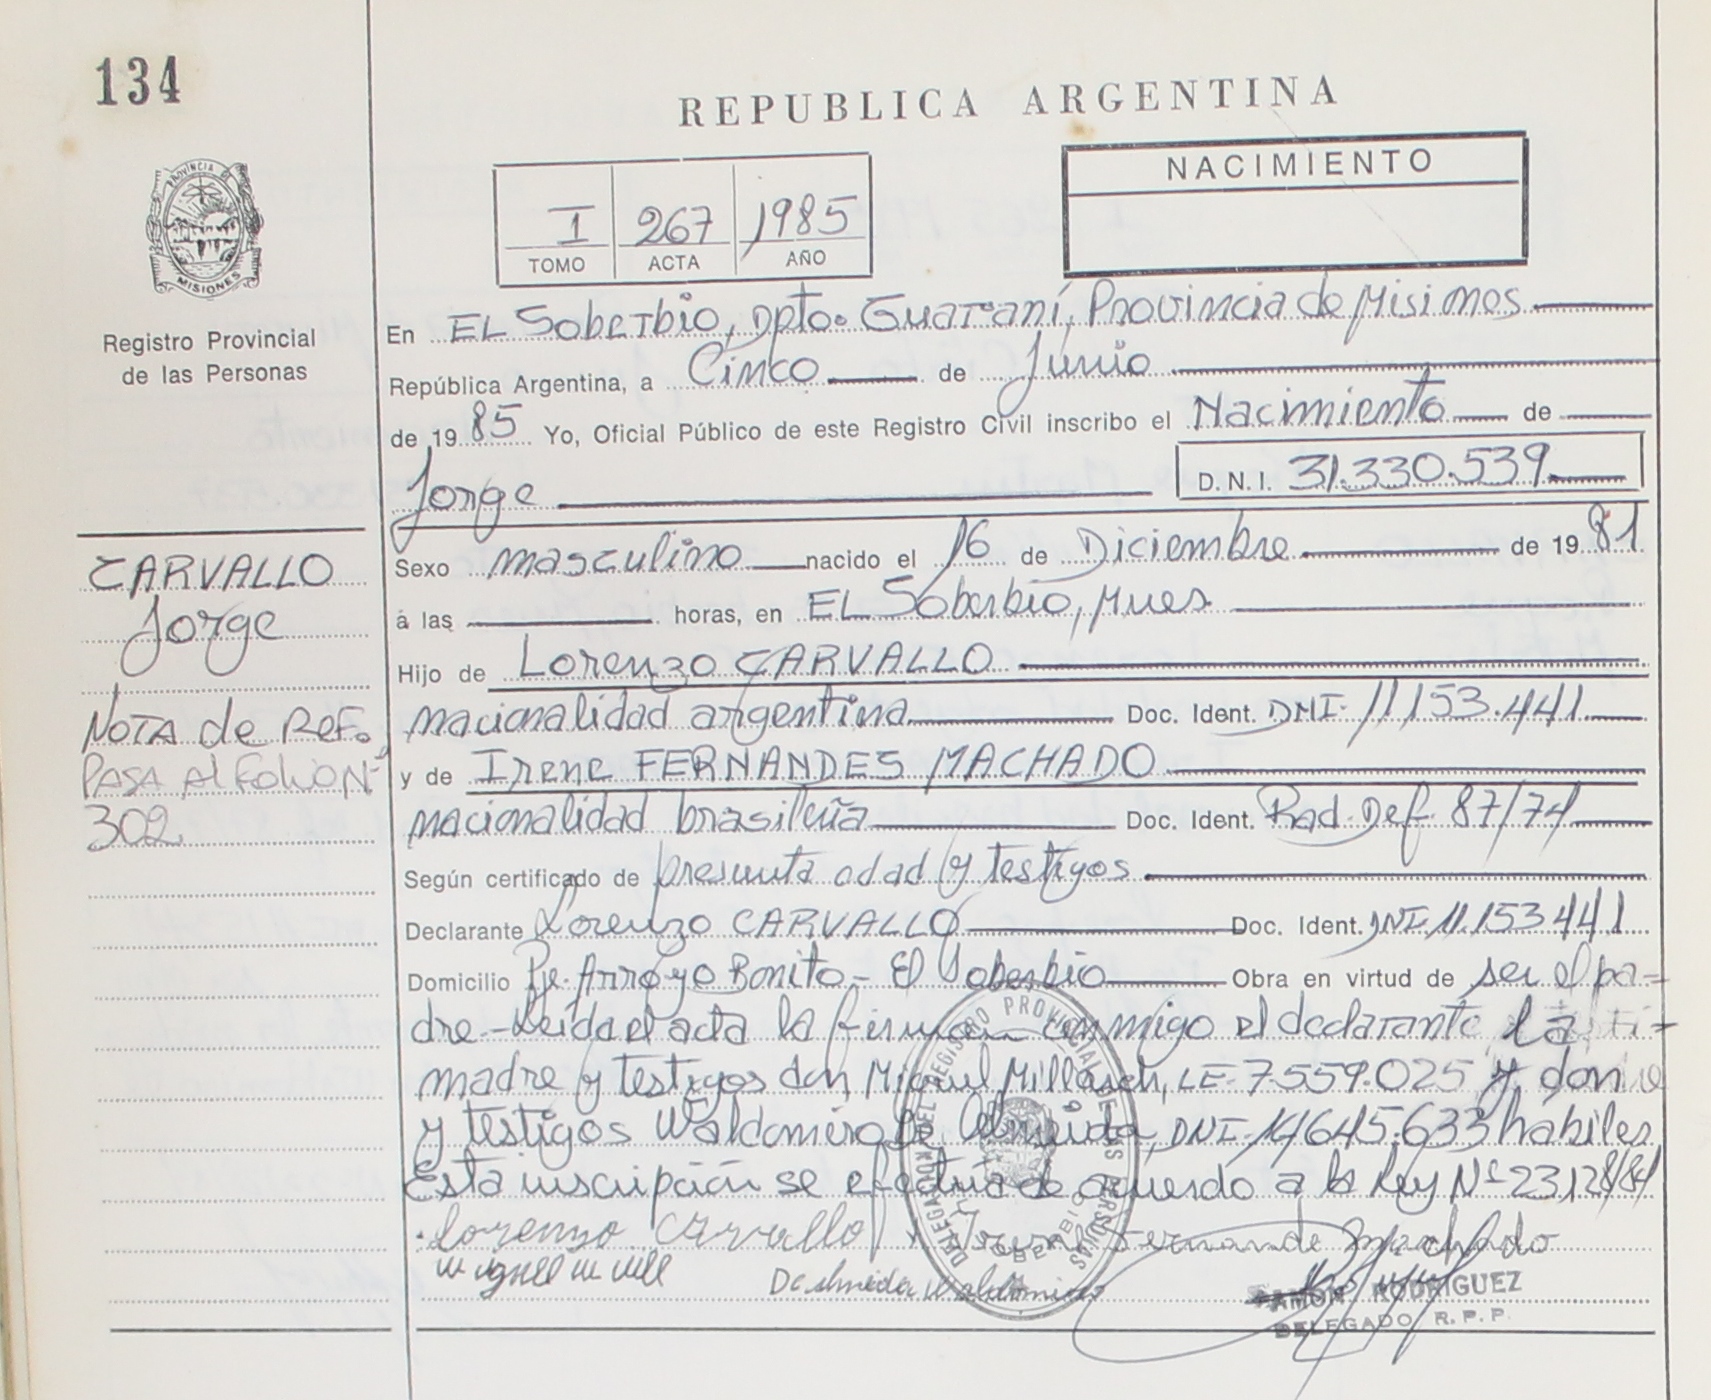 134
REPUBLICA ARGENTINA
NACIMIENTO
I 267 1985
TOMO ACTA AÑO
PROVINCIA DE
MISIONES
Registro Provincial
de las Personas
En EL Soberbio, Dpto. Guaraní, Provincia de Misiones
República Argentina, a Cinco de Junio
de 19 85 Yo, Oficial Público de este Registro Civil inscribo el Nacimiento de
Jorge D.N.I. 31.330.539
CARVALLO
Jorge
NOTA de REF.
PASA Al Folio Nº
302
Sexo masculino nacido el 16 de Diciembre de 19 81
á las horas, en EL Soberbio, Mnes
Hijo de Lorenzo CARVALLO
nacionalidad argentina Doc. Ident. DNI. 11.153.441
y de Irene FERNANDES MACHADO
nacionalidad brasileña Doc. Ident. Rad. Def. 87/74
Según certificado de presunta edad y testigos
Declarante Lorenzo CARVALLO Doc. Ident. DNI 11.153.441
Domicilio Pje. Arroyo Bonito - El Soberbio Obra en virtud de ser el pa-
dre - Leida el acta la firman conmigo el declarante la
madre y testigos don Miguel LE. 7.559.025 y don
y testigos Waldomiro De Almeida, DNI 14.645.633 habiles
Esta inscripción se efectúa de acuerdo a la Ley Nº 23.128/84
Lorenzo Carvallo Irene Fernande Machado
De Almeida Waldomiro
RAMON RODRIGUEZ
DELEGADO R.P.P.
DELEGACION DEL REGISTRO PROVINCIAL DE LAS PERSONAS
EL SOBERBIO